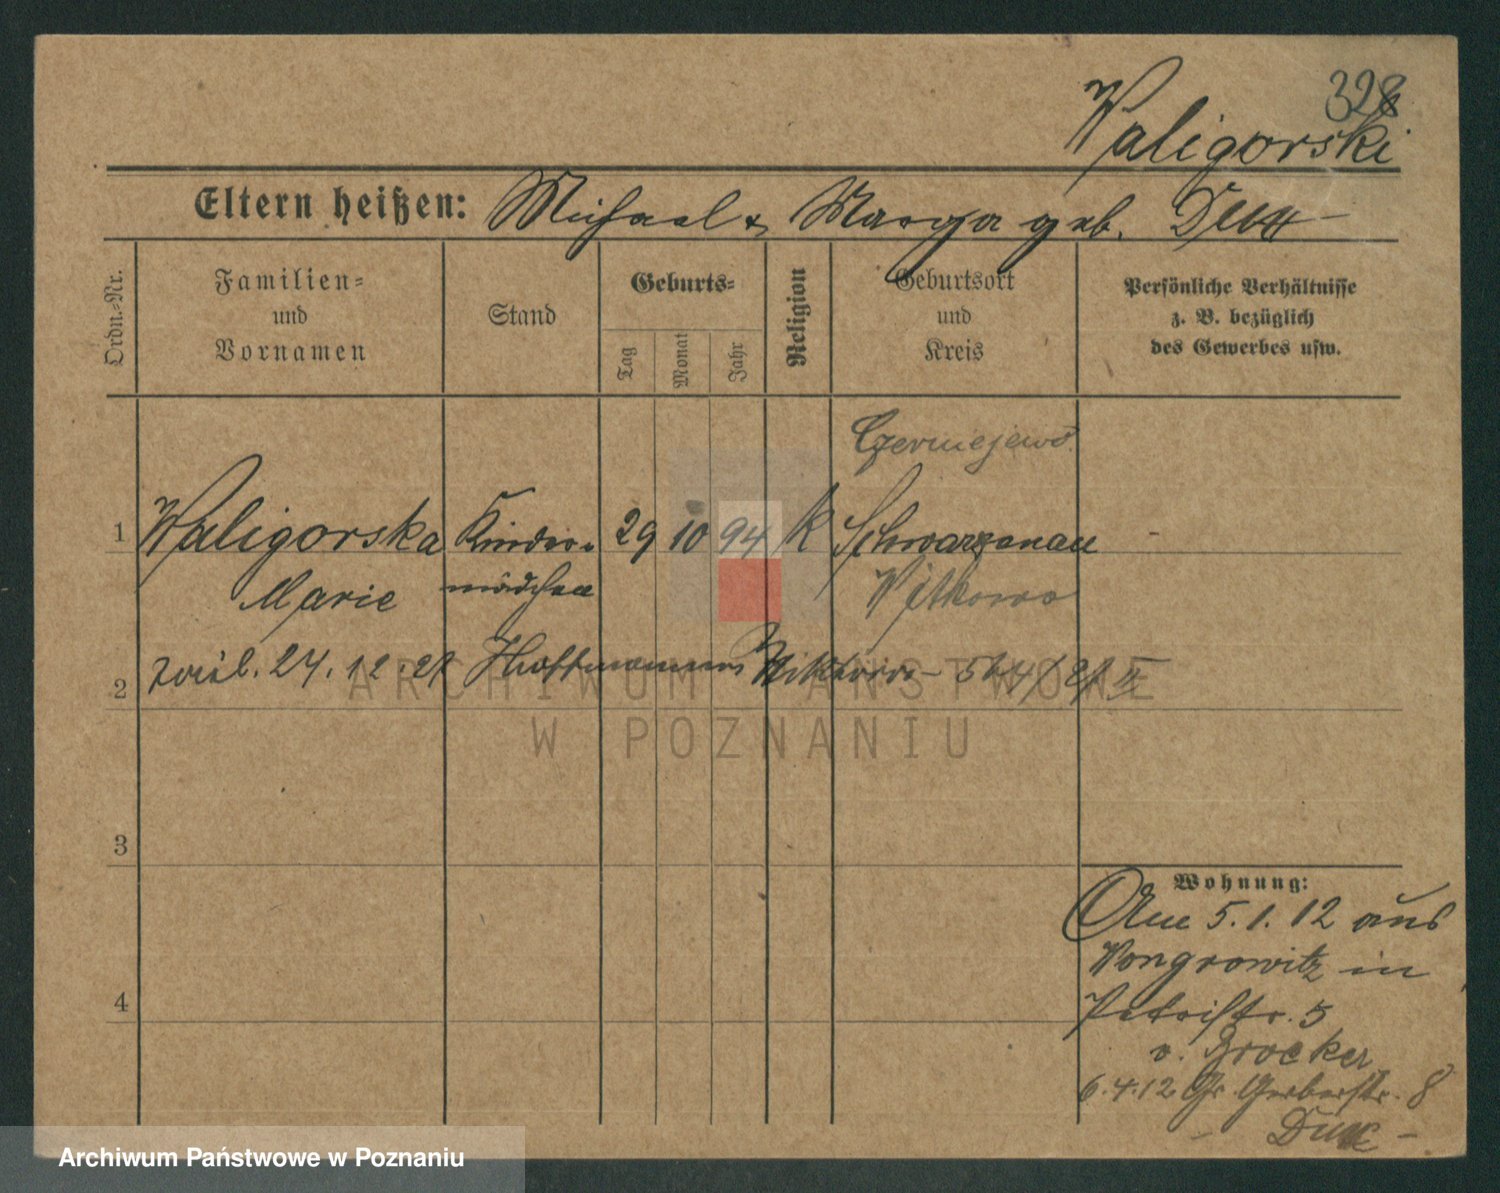 328
Waligorski
Eltern heißen: Michael & Marya geb. Dux
Ordn.-Nr.
Familien-
und
Vornamen
Stand
Geburts-
Tag
Monat
Jahr
Religion
Geburtsort
und
Kreis
Persönliche Verhältnisse
z. B. bezüglich
des Gewerbes usw.
Czerniejewo
1 Waligorska Kinder- 29 10 94 K Schwarzenau
Marie mädchen Witkowo
2 24.12.21 Wiktorro 544/21 II
3
4
Wohnung:
Am 5.1.12 aus
Wongrowitz in
Petristr. 5
v. Brocker
6.4.12 Gr. Gerberstr. 8
- Dux -
ARCHIWUM PAŃSTWOWE
W POZNANIU
Archiwum Państwowe w Poznaniu